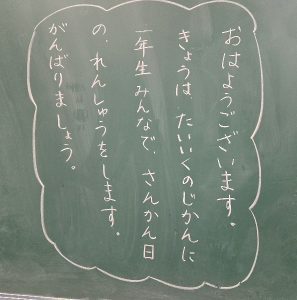 おはようございます。
きょうは、たいいくのじかんに
一年生みんなで、さんかん日
の、れんしゅうをします。
がんばりましょう。